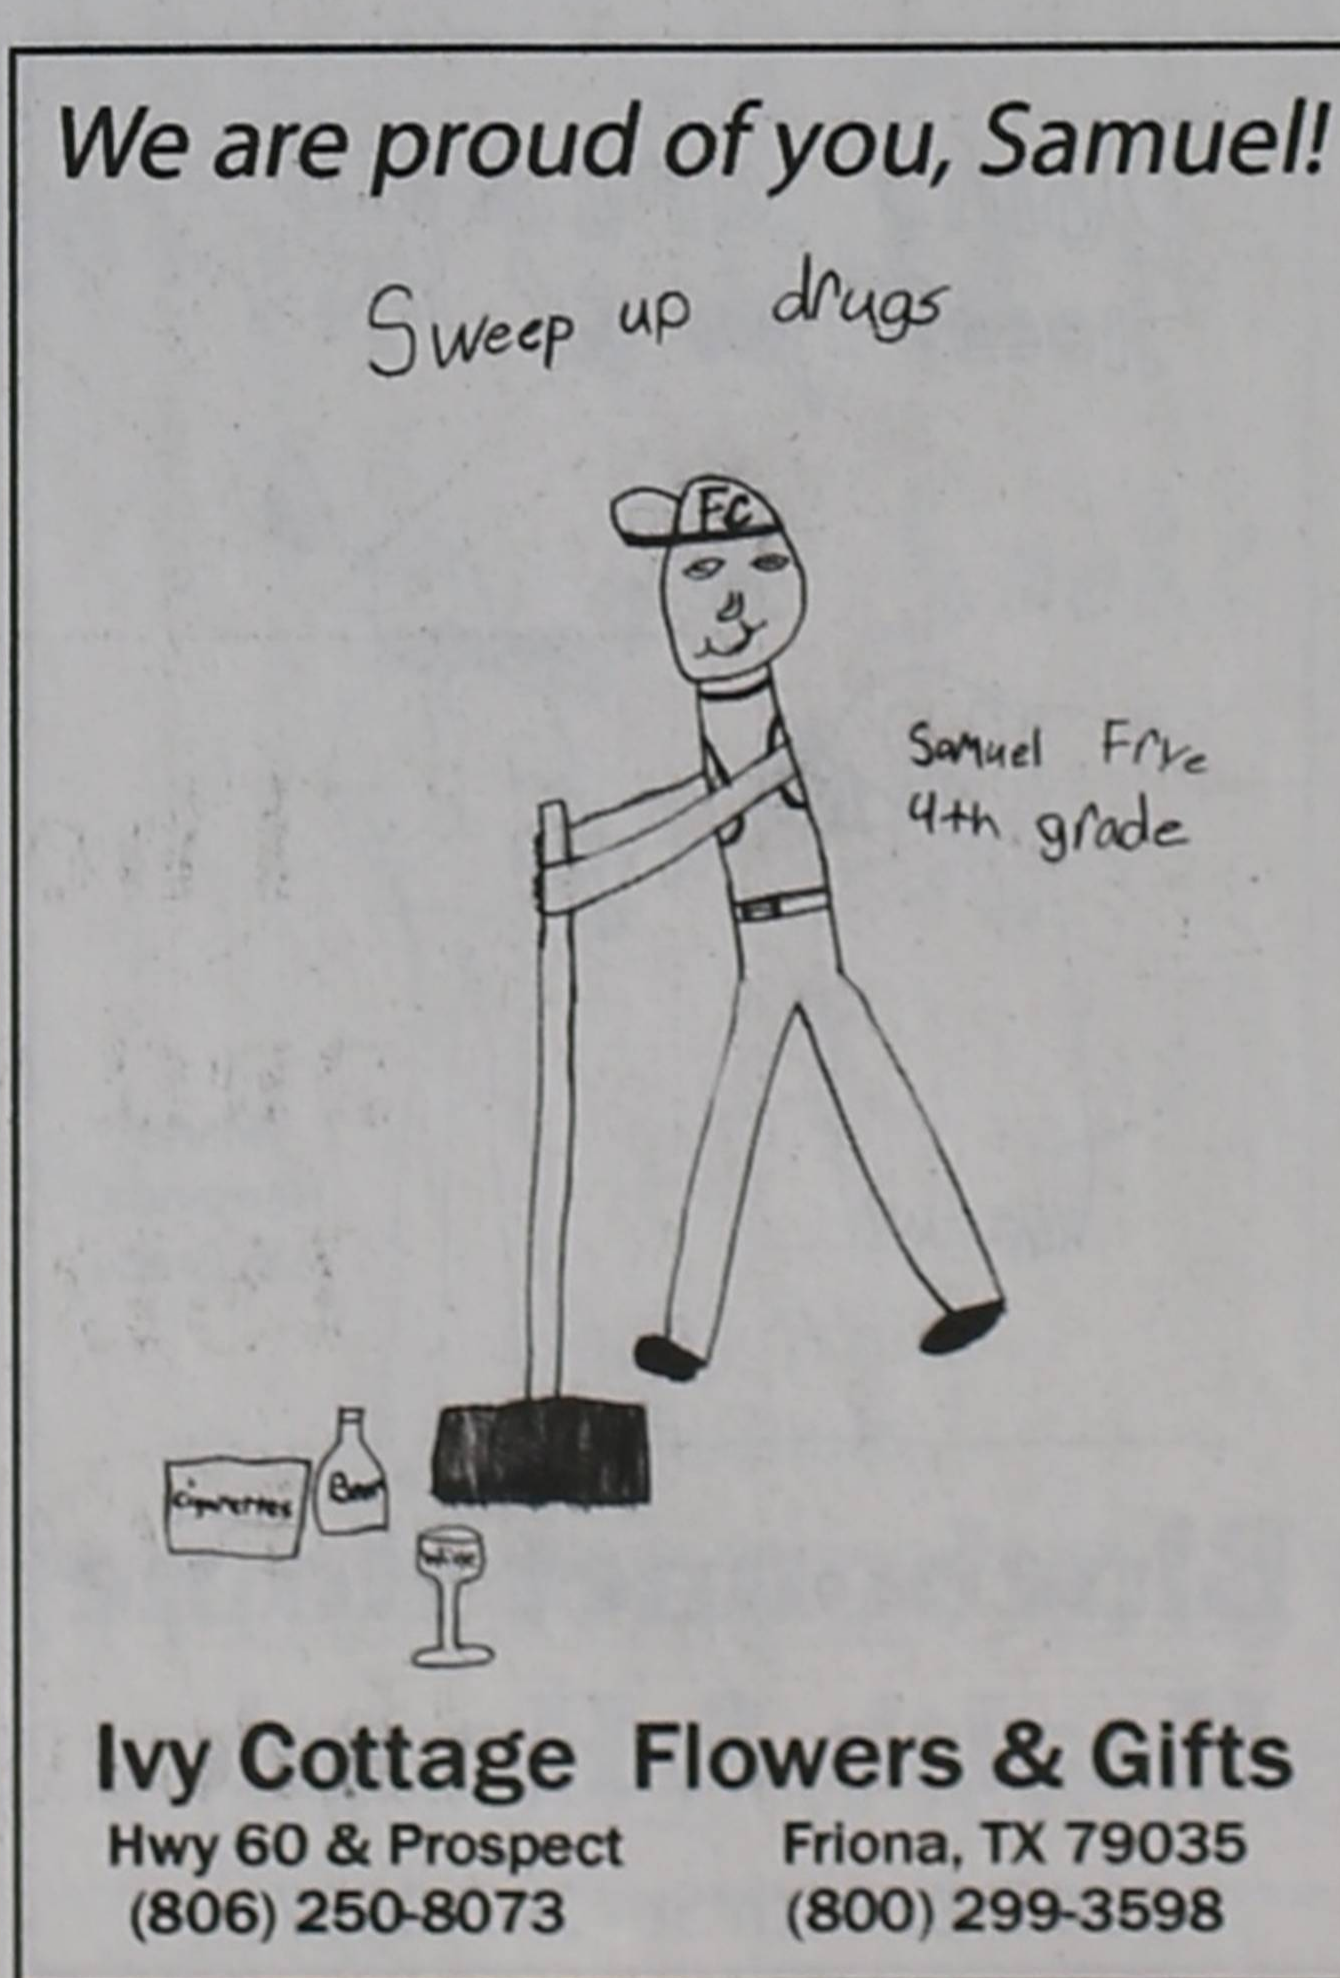 We are proud of you, Samuel!
Sweep up drugs
FC
Samuel Frye
4th grade
Cigarettes
Beer
Wine
Ivy Cottage Flowers & Gifts
Hwy 60 & Prospect Friona, TX 79035
(806) 250-8073 (800) 299-3598